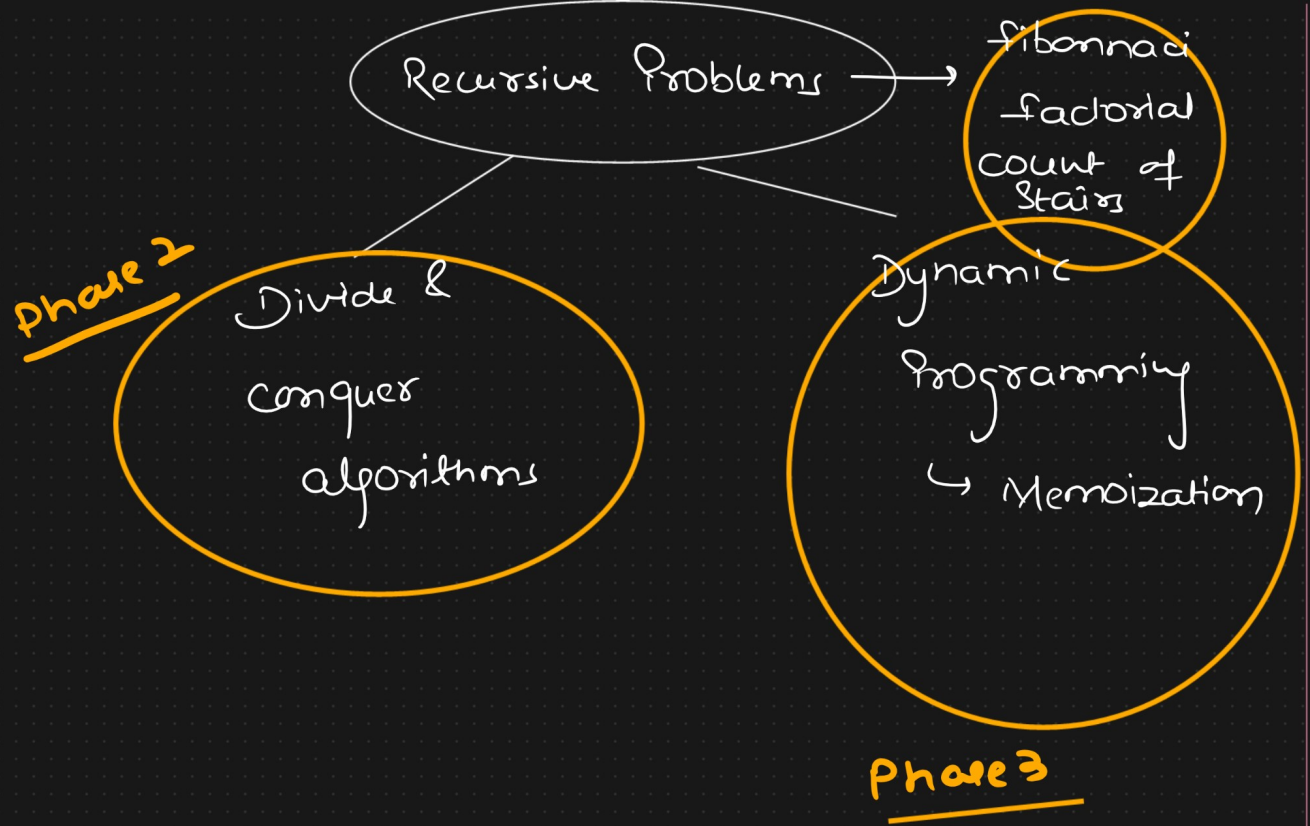 Recursive Problems →
fibonnaci
factorial
count of
Stairs
Phase 2
Divide &
conquer
algorithms
Dynamic
Programming
↳ Memoization
Phase 3